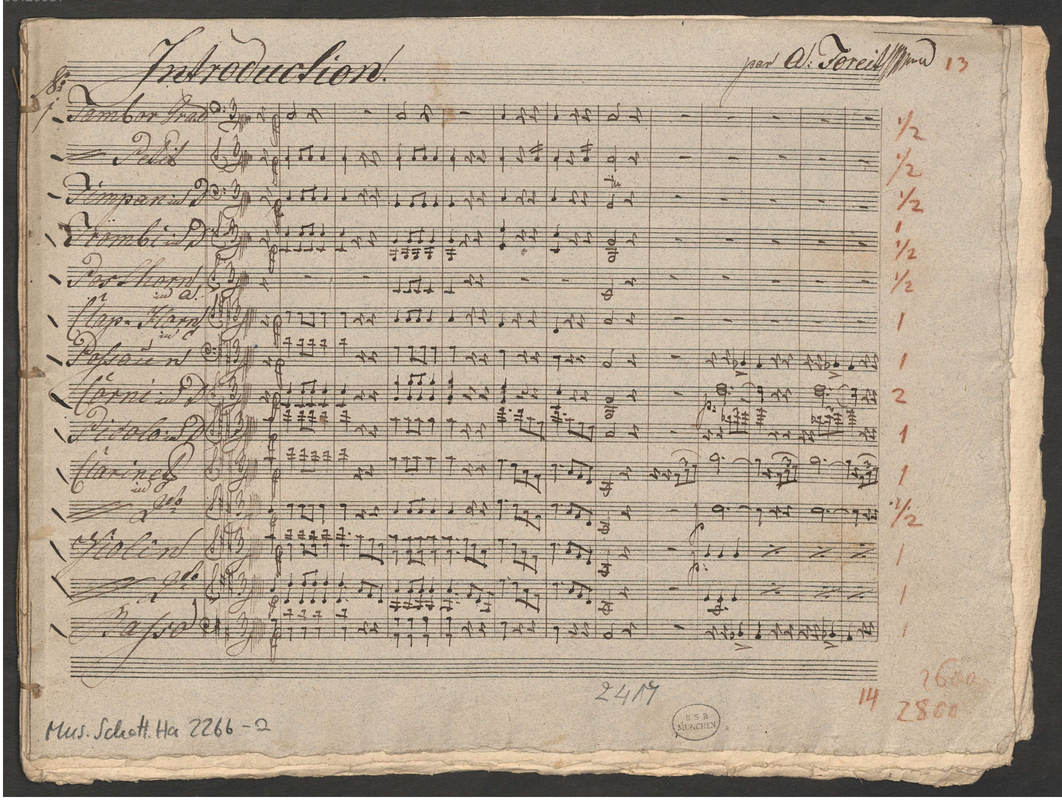 Introduction.
par A: Foreit
13
Tambor Grad
1/2
Petit
1/2
Timpan in D
1/2
Trombi in D
1/2
Posthorn
in A.
1/2
Clap-Horn
in
1
Possaun
1
Corni in D
2
Picolo in D
1
Clarinet
in
1
2do
1/2
Violin
1
2do
1
Basso
1
2417
14
2600
2800
Mus. Schott. Ha 2266-2
B S B
MÜNCHEN